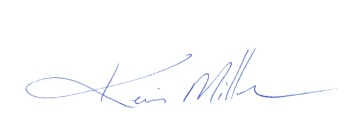 Kevin Miller